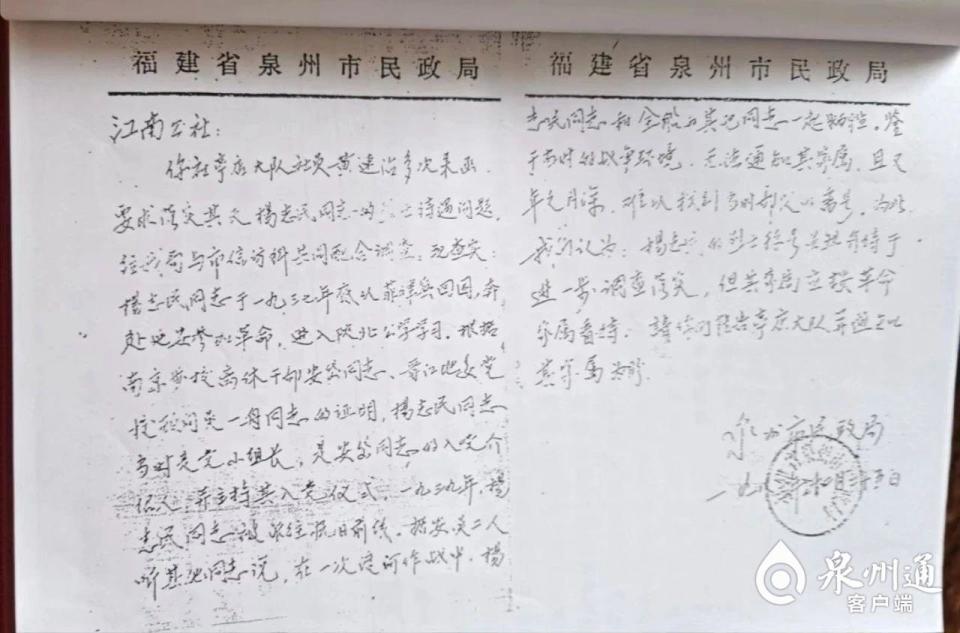 福建省泉州市民政局
江南公社：
你社亭店大队社员黄速治多次来函
要求落实其父杨志民同志的烈士待遇问题，
经我局与市信访科共同配合调查，现查实：
杨志民同志于一九三七年底从菲律宾回国，奔
赴地区参加革命，进入陕北公学学习。根据
南京 校离休干部安岱同志、晋江地委党
校顾问吴一舟同志的证明，杨志民同志
当时党小组长，是安岱同志的入党介
绍人，并主持其入党仪式，一九三九年，杨
志民同志被派往抗日前线。据安、吴二人
听其他同志说，在一次渡河作战中，杨
福建省泉州市民政局
志民同志和全船的其他同志一起牺牲。鉴
于当时的战争环境，无法通知其家属，且又
年久月深，难以找到当时部队的番号。为此，
我们认为：杨志民的烈士称号 待于
进一步调查落实，但其家属应按革命
家属看待。请你们转告亭店大队并通知
其家属为盼。
泉州市民政局
一九 月 日
泉州通
客户端